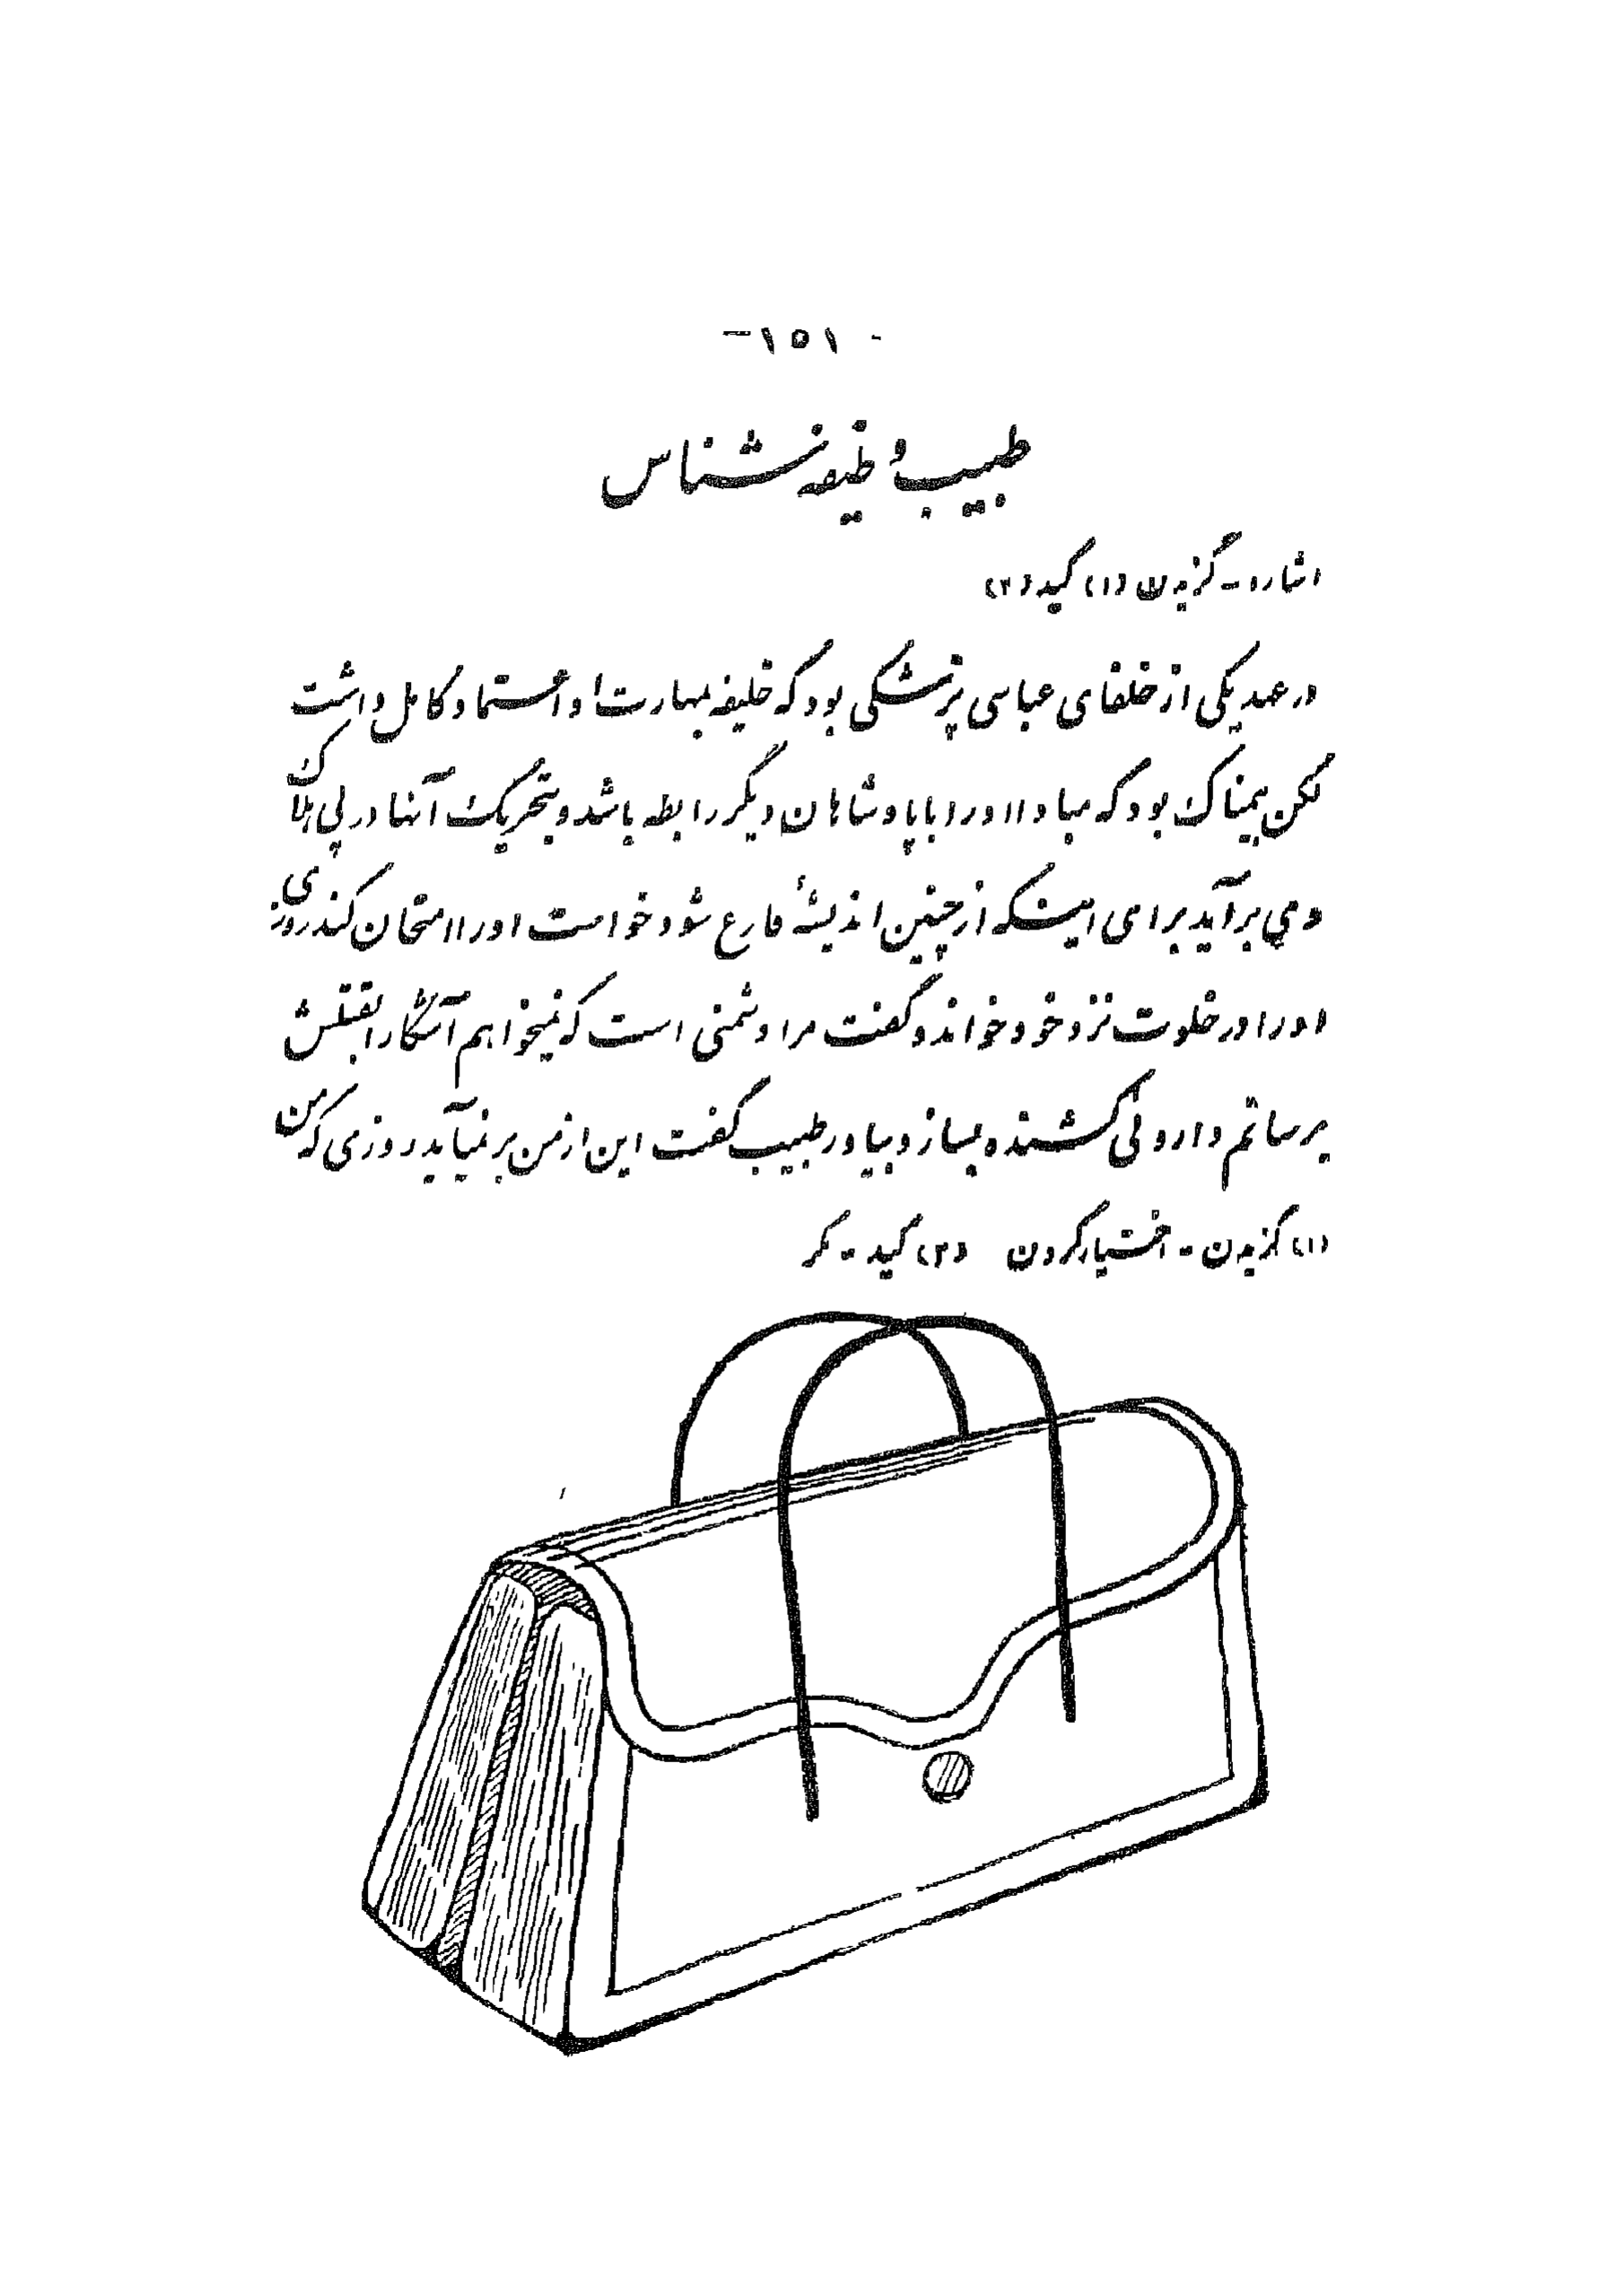 -۱۵۱-
طبیب وظیفه‌شناس
اشاره - گزیدن (۱) کید (۲)
در عهد یکی از خلفای عباسی پزشکی بود که خلیفه بمهارت او اعتماد کامل داشت
لکن بیمناک بود که مبادا او را با پادشاهان دیگر رابطه باشد و بتحریک آنها در پی هلاک
وی برآید برای اینکه از چنین اندیشهٔ فارغ شود خواست او را امتحان کند روزی
او را در خلوت نزد خود خواند و گفت مرا دشمنی است که نمیخواهم آشکارا بقتلش
برسانم داروئی کشنده بساز و بیاور طبیب گفت این از من برنمیآید روزی که من
(۱) گزیدن - اختیار کردن (۲) کید - مکر